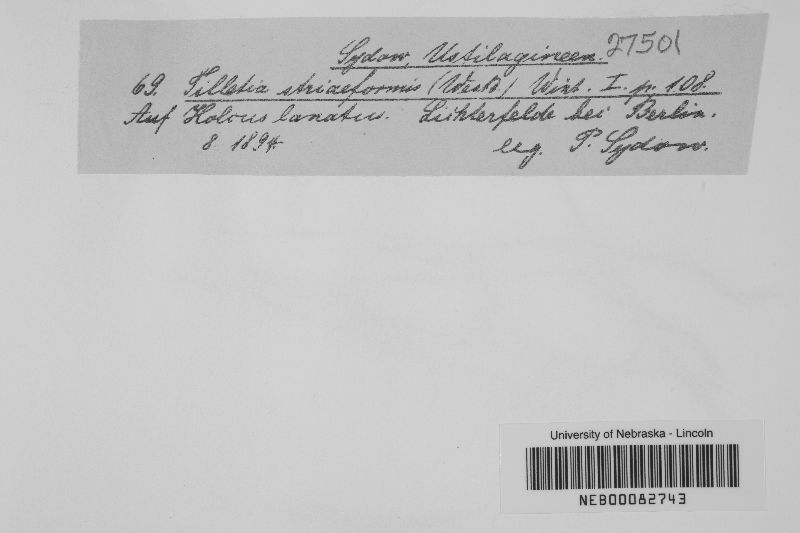 Sydow, Ustilagineen. 27501
69. Tilletia striaeformis (Westd.) Wint. I. p. 108.
Auf Holcus lanatus. Lichterfelde bei Berlin.
8. 1894. leg. P. Sydow.
University of Nebraska - Lincoln
NEB00082743